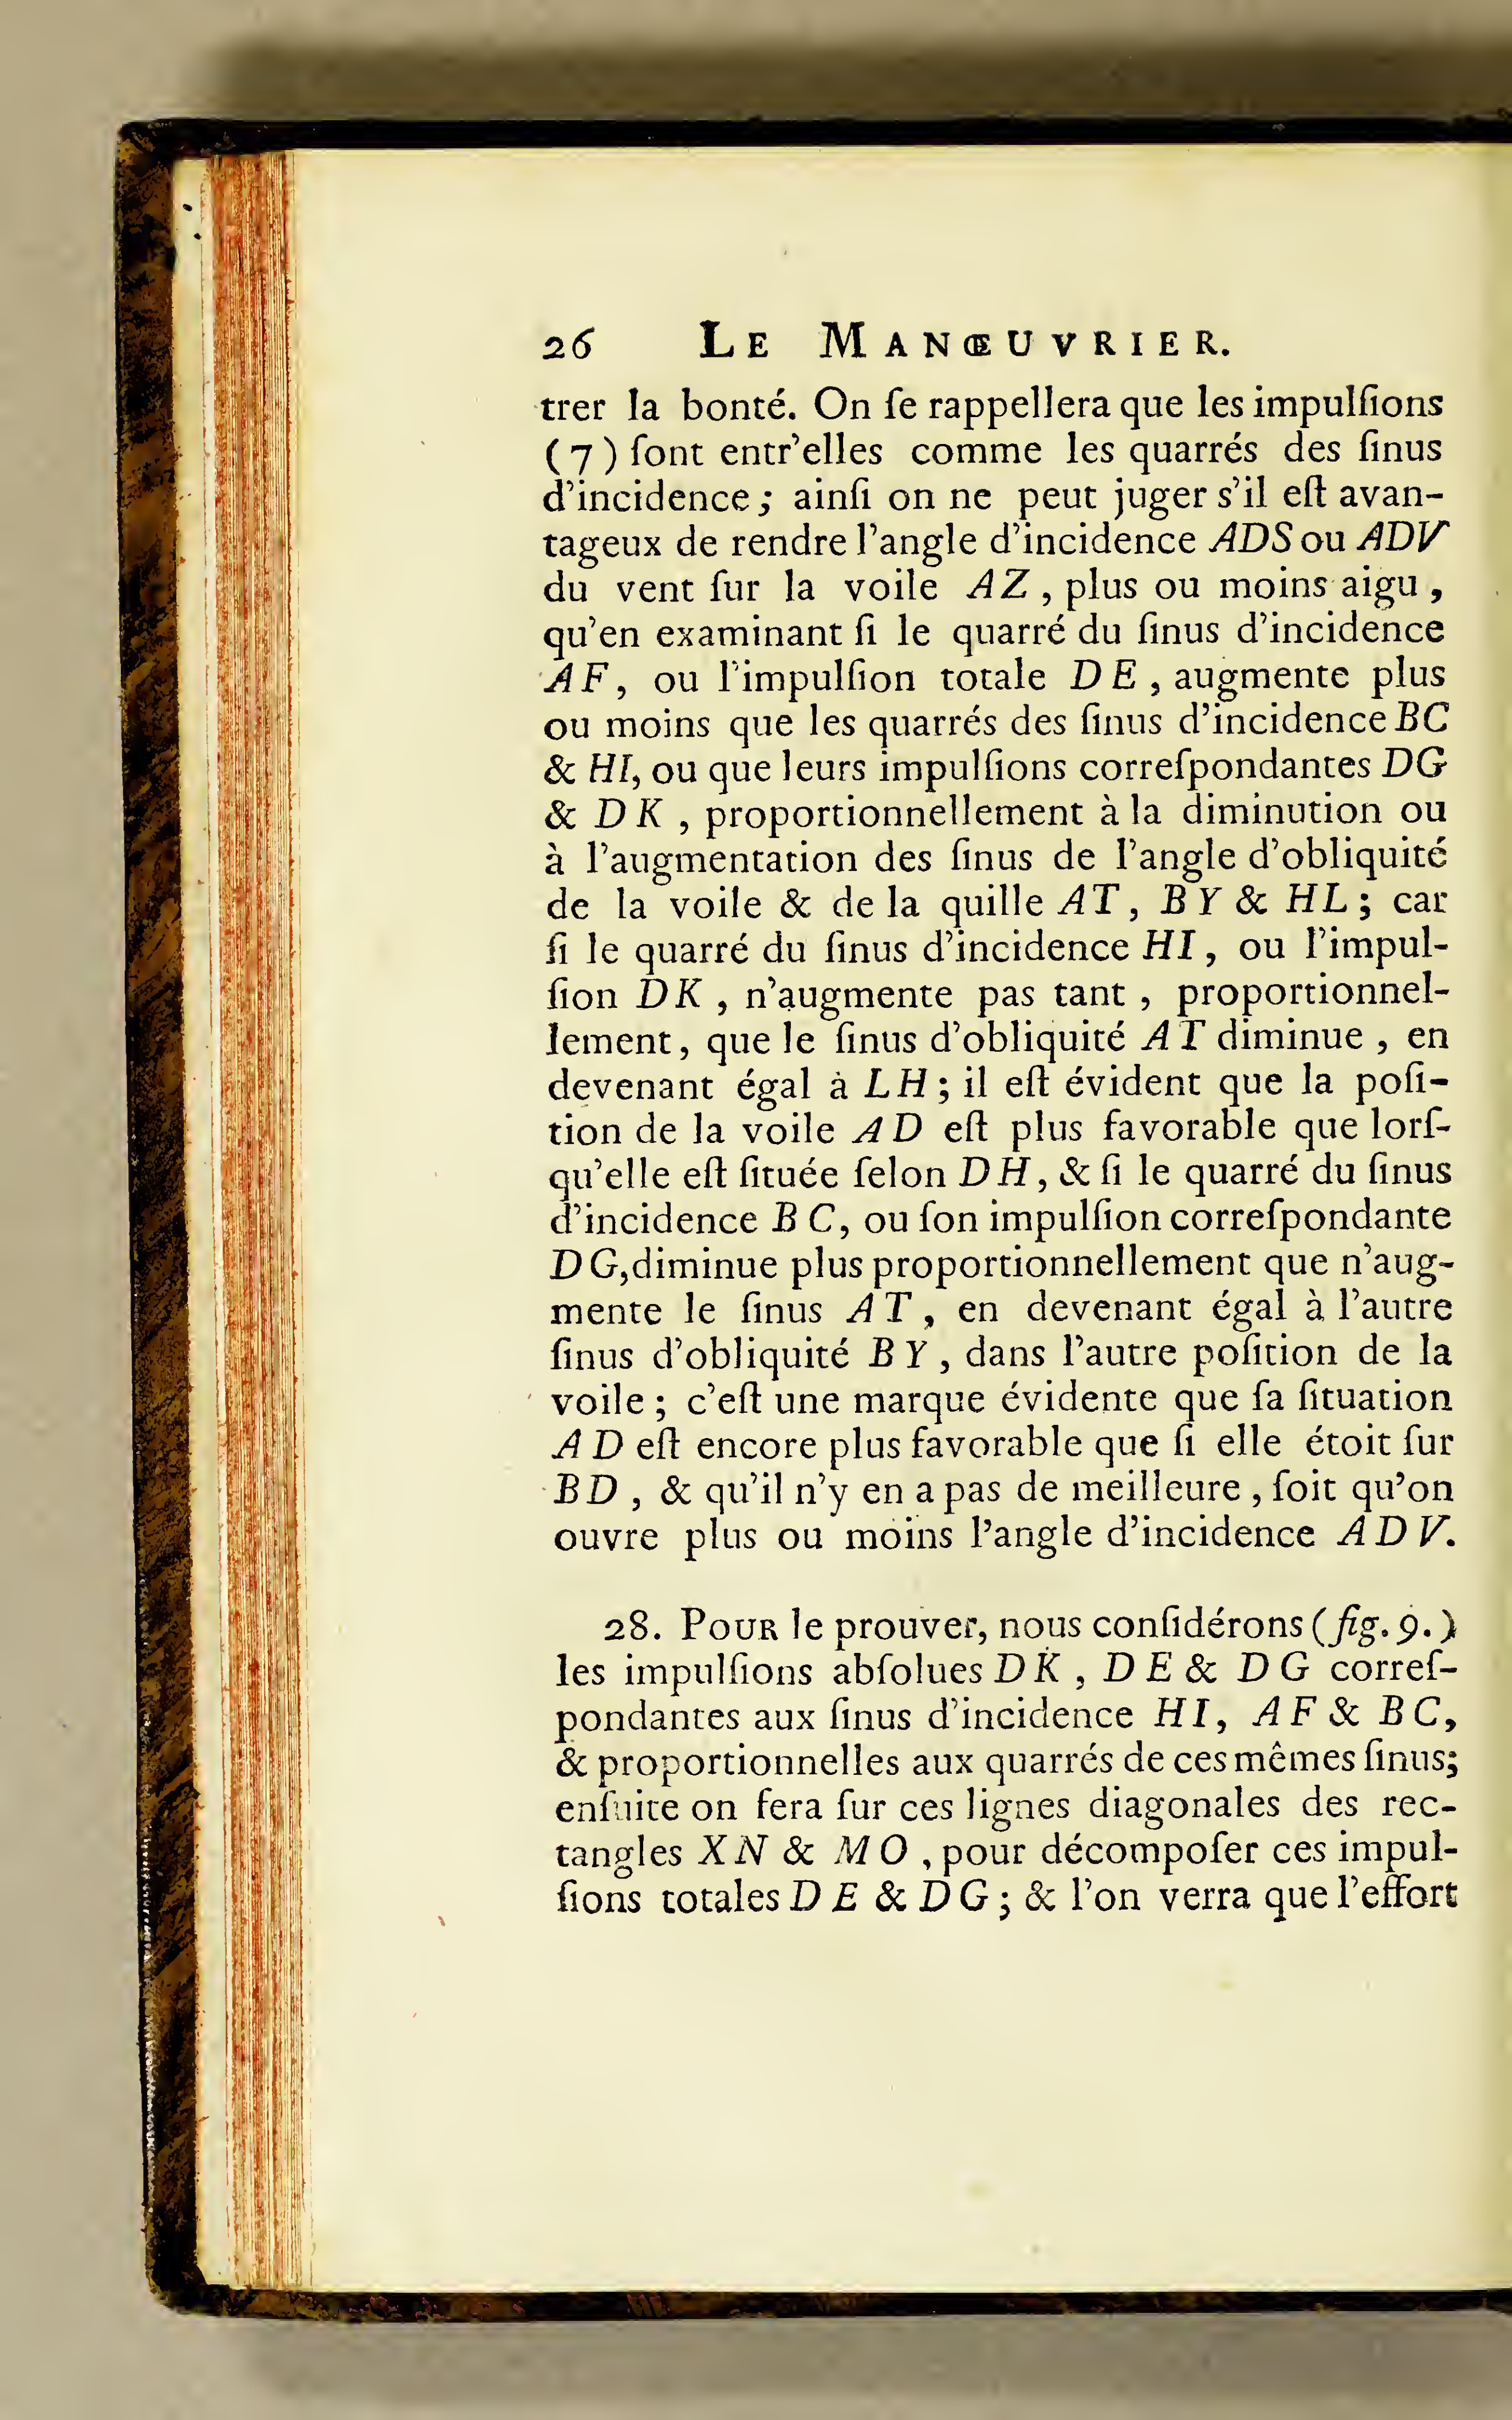 26 LE MANŒUVRIER.
trer la bonté. On ſe rappellera que les impulſions
(7) ſont entr'elles comme les quarrés des ſinus
d'incidence; ainſi on ne peut juger s'il eſt avan-
tageux de rendre l'angle d'incidence ADS ou ADV
du vent ſur la voile AZ, plus ou moins aigu,
qu'en examinant ſi le quarré du ſinus d'incidence
AF, ou l'impulſion totale DE, augmente plus
ou moins que les quarrés des ſinus d'incidence BC
& HI, ou que leurs impulſions correſpondantes DG
& DK, proportionnellement à la diminution ou
à l'augmentation des ſinus de l'angle d'obliquité
de la voile & de la quille AT, BY & HL; car
ſi le quarré du ſinus d'incidence HI, ou l'impul-
ſion DK, n'augmente pas tant, proportionnel-
lement, que le ſinus d'obliquité AT diminue, en
devenant égal à LH; il eſt évident que la poſi-
tion de la voile AD eſt plus favorable que lorſ-
qu'elle eſt ſituée ſelon DH, & ſi le quarré du ſinus
d'incidence BC, ou ſon impulſion correſpondante
DG, diminue plus proportionnellement que n'aug-
mente le ſinus AT, en devenant égal à l'autre
ſinus d'obliquité BY, dans l'autre poſition de la
voile; c'eſt une marque évidente que ſa ſituation
AD eſt encore plus favorable que ſi elle étoit ſur
BD, & qu'il n'y en a pas de meilleure, ſoit qu'on
ouvre plus ou moins l'angle d'incidence ADV.
28. POUR le prouver, nous conſidérons (fig. 9.)
les impulſions abſolues DK, DE & DG correſ-
pondantes aux ſinus d'incidence HI, AF & BC,
& proportionnelles aux quarrés de ces mêmes ſinus;
enſuite on fera ſur ces lignes diagonales des rec-
tangles XN & MO, pour décompoſer ces impul-
ſions totales DE & DG; & l'on verra que l'effort